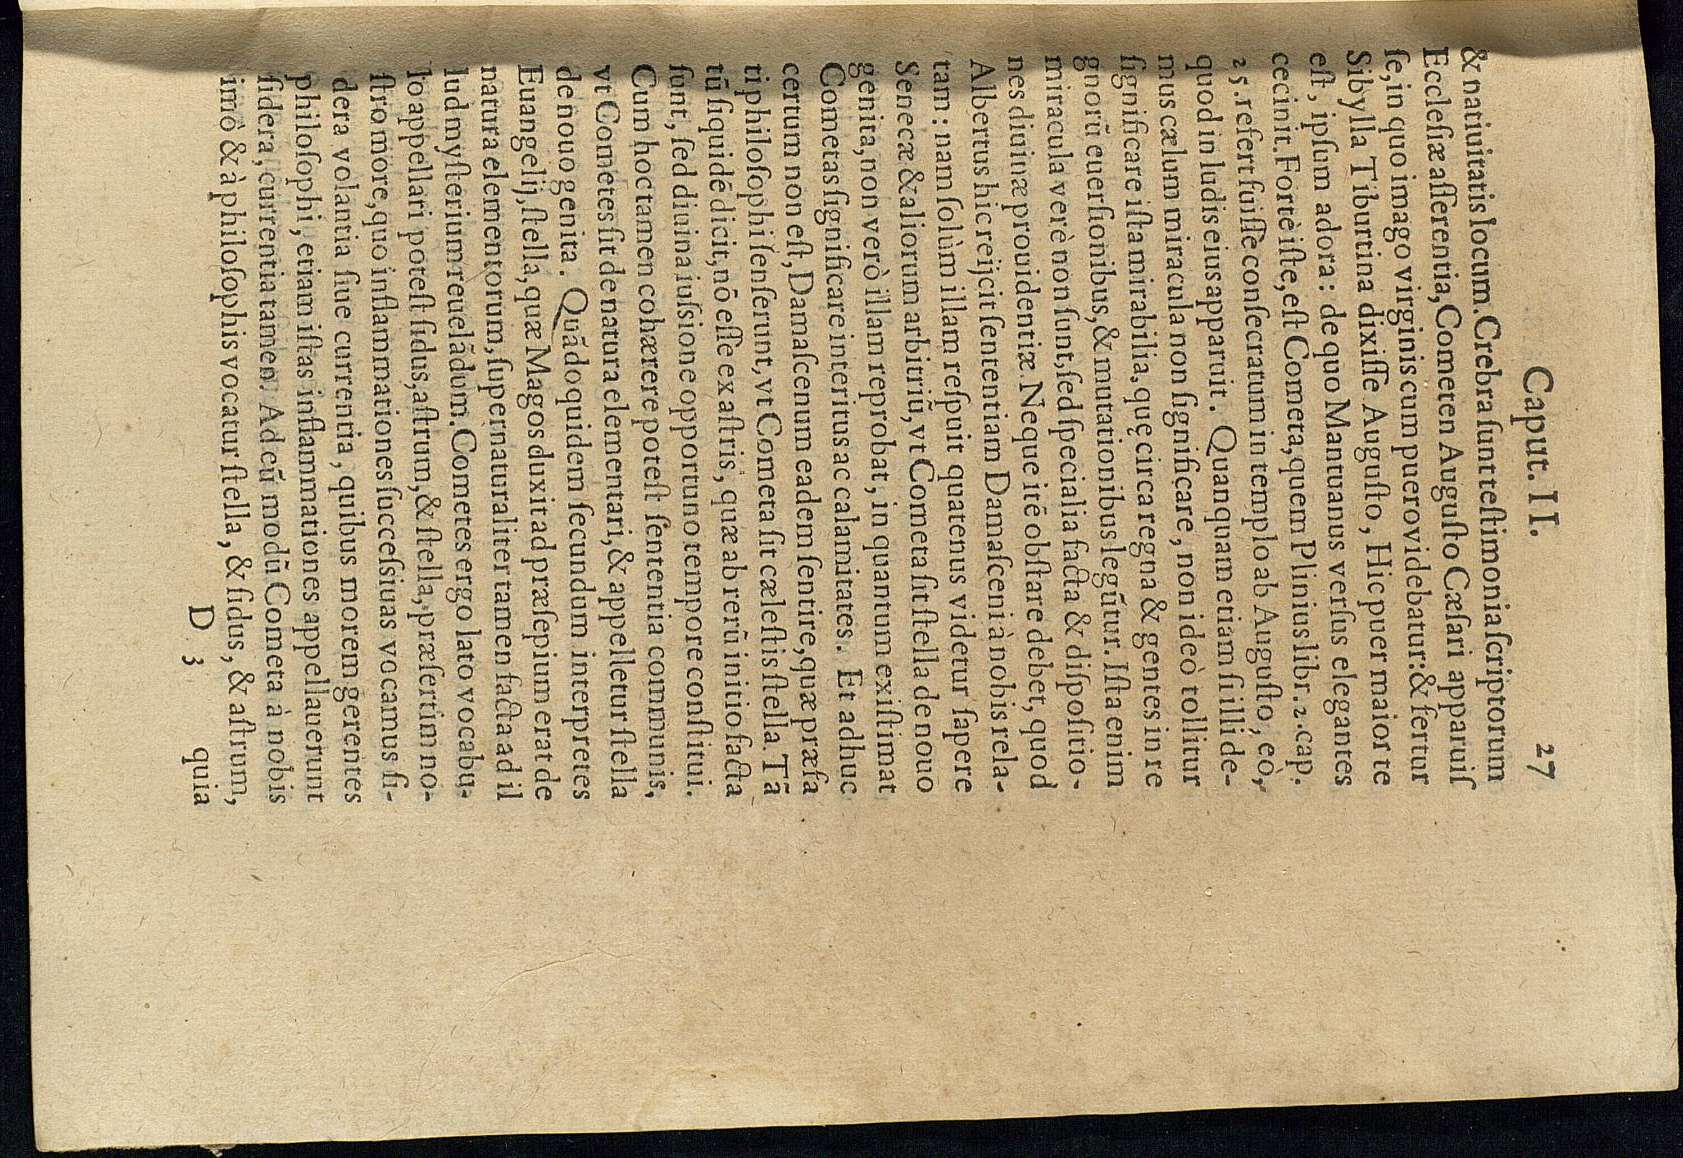 Caput. II. 27
& natiuitatis locum. Crebra sunt testimonia scriptorum
Ecclesiæ asserentia, Cometen Augusto Cæsari apparuis
se, in quo imago virginis cum puero videbatur: & fertur
Sibylla Tiburtina dixisse Augusto, Hic puer maior te
est, ipsum adora: de quo Mantuanus versus elegantes
cecinit. Fortè iste, est Cometa, quem Plinius libr. 2. cap.
25. refert fuisse consecratum in templo ab Augusto, eò,
quod in ludis eius apparuit. Quanquam etiam si illi de-
mus cælum miracula non significare, non ideò tollitur
significare ista mirabilia, quę circa regna & gentes in re
gnorũ euersionibus, & mutationibus legũtur. Ista enim
miracula verè non sunt, sed specialia facta & dispositio-
nes diuinæ prouidentiæ. Neque itẽ obstare debet, quod
Albertus hic reijcit sententiam Damasceni à nobis rela-
tam: nam solùm illam respuit quatenus videtur sapere
Senecæ & aliorum arbitriũ, vt Cometa sit stella de nouo
genita, non verò illam reprobat, in quantum existimat
Cometas significare interitus ac calamitates. Et adhuc
certum non est, Damascenum eadem sentire, quæ præfa
ti philosophi senserunt, vt Cometa sit cælestis stella. Tã
tũ siquidẽ dicit, nõ esse ex astris, quæ ab rerũ initio facta
sunt, sed diuina iussione opportuno tempore constitui.
Cum hoc tamen cohærere potest sententia communis,
vt Cometes sit de natura elementari, & appelletur stella
de nouo genita. Quãdoquidem secundum interpretes
Euangelij, stella, quæ Magos duxit ad præsepium erat de
natura elementorum, supernaturaliter tamen facta ad il
lud mysterium reuelãdum. Cometes ergo lato vocabu-
lo appellari potest sidus, astrum, & stella, præsertim no-
stro more, quo inflammationes successiuas vocamus si-
dera volantia siue currentia, quibus morem gerentes
philosophi, etiam istas inflammationes appellauerunt
sidera, currentia tamen. Ad eũ modũ Cometa à nobis
imò & à philosophis vocatur stella, & sidus, & astrum,
D 3 quia